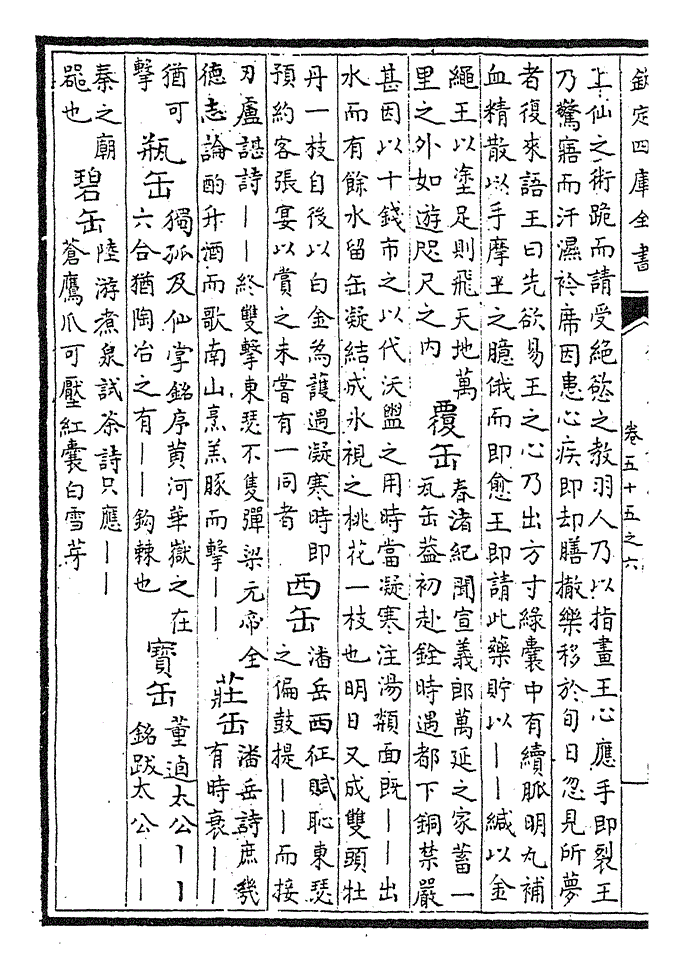 欽定四庫全書
卷五十五之六
上仙之術跪而請受絕慾之教羽人乃以指畫王心應手即裂王
乃驚寤而汗濕衿席因患心疾即却膳撤樂移於旬日忽見所夢
者復來語王曰先欲易王之心乃出方寸綠囊中有續脈明丸補
血精散以手摩王之臆俄而即愈王即請此藥貯以｜｜緘以金
繩王以塗足則飛天地萬
里之外如遊咫尺之内
覆缶
春渚紀聞宣義郎萬延之家蓄一
瓦缶葢初赴銓時遇都下銅禁嚴
甚因以十錢市之以代沃盥之用時當凝寒注湯頮面既｜｜出
水而有餘水留缶凝結成氷視之桃花一枝也明日又成雙頭牡
丹一枝自後以白金為護遇凝寒時即
預約客張宴以賞之未嘗有一同者
西缶
潘岳西征賦恥東瑟
之偏鼓提｜｜而接
刃盧諶詩｜｜終雙擊東瑟不隻彈梁元帝全
德志論酌升酒而歌南山烹羔豚而擊｜｜
莊缶
潘岳詩庶幾
有時衰｜｜
猶可
擊
瓶缶
獨孤及仙掌銘序黄河華嶽之在
六合猶陶冶之有｜｜鈎棘也
寶缶
董逌太公｜｜
銘跋太公｜｜
秦之廟
噐也
碧缶
陸游煮泉試茶詩只應｜｜
蒼鷹爪可壓紅囊白雪芽